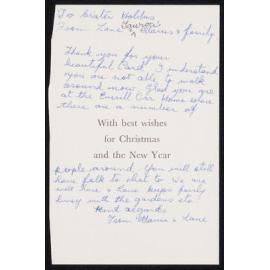 To Sister Hobbs
Lauron
From Lane ^ Mavis & family
Thank you for your
beautiful Card. I understand
you are not able to walk
around now. Glad you are
at the Orr Home where
there are a number of
With best wishes
for Christmas
and the New Year
people around. You will still
have folk to chat to. We are
well here & Lane keeps fairly
busy with the gardens etc.
Kind regards
From Mavis & Lane